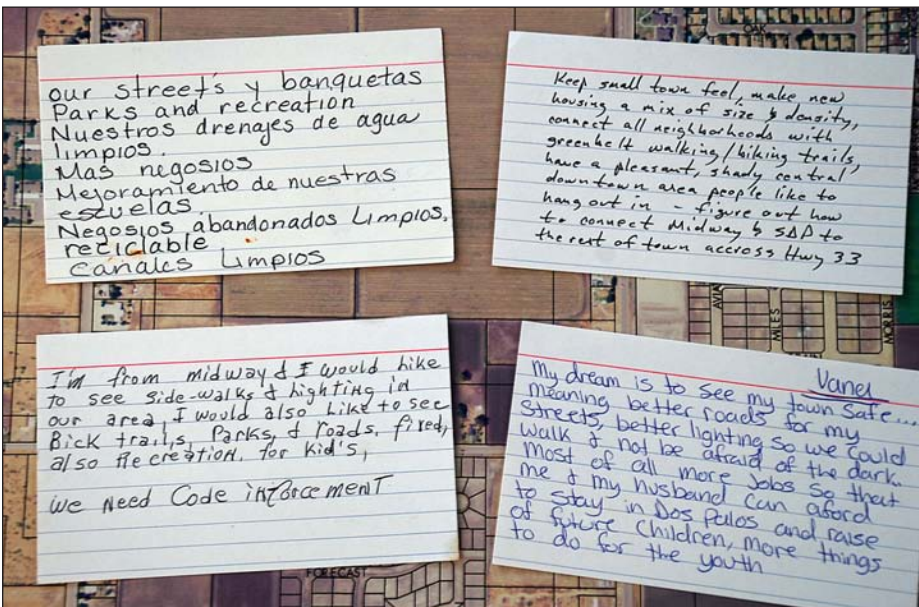 our street's y banquetas
Parks and recreation
Nuestros drenajes de agua
limpios.
Mas negosios
Mejoramiento de nuestras
escuelas
Negosios abandonados Limpios.
reciclable
Canales Limpios
Keep small town feel, make new
housing a mix of size & density,
connect all neighborhoods with
greenbelt walking/biking trails,
have a pleasant, shady central
downtown area people like to
hang out in - figure out how
to connect Midway & SDP to
the rest of town accross Hwy 33
I'm from midway & I would like
to see side-walks & lighting in
our area, I would also Like to see
Bick trails, Parks, & roads, fixed,
also Recreation, for kid's,
we Need Code inforcemenT
Vaney
My dream is to see my town safe...
meaning better roads for my
streets, better lighting so we could
walk & not be afraid of the dark.
most of all more Jobs so that
me & my husband can aford
to stay in Dos Palos and raise
of future children, more things
to do for the youth
OAK
MILES
MORRIS
FORECAST